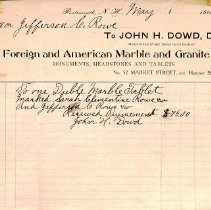 N. H. May 1
Jefferson C. Rowe
To JOHN H. DOWD, D
Foreign and American Marble and Granite
MONUMENTS, HEADSTONES AND TABLETS
No. 52 MARKET STREET,
To one Duble Marble Tablet
Marked Sarah Clementine Rowe
And Jefferson C Rowe
Received Payment
John H. Dowd